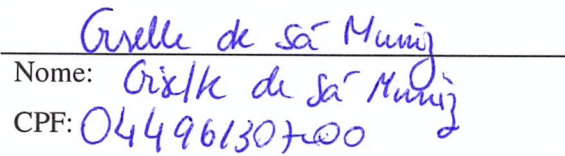 Giselle de Sá Muniz
Nome: Giselle de Sá Muniz
CPF: 04496130700